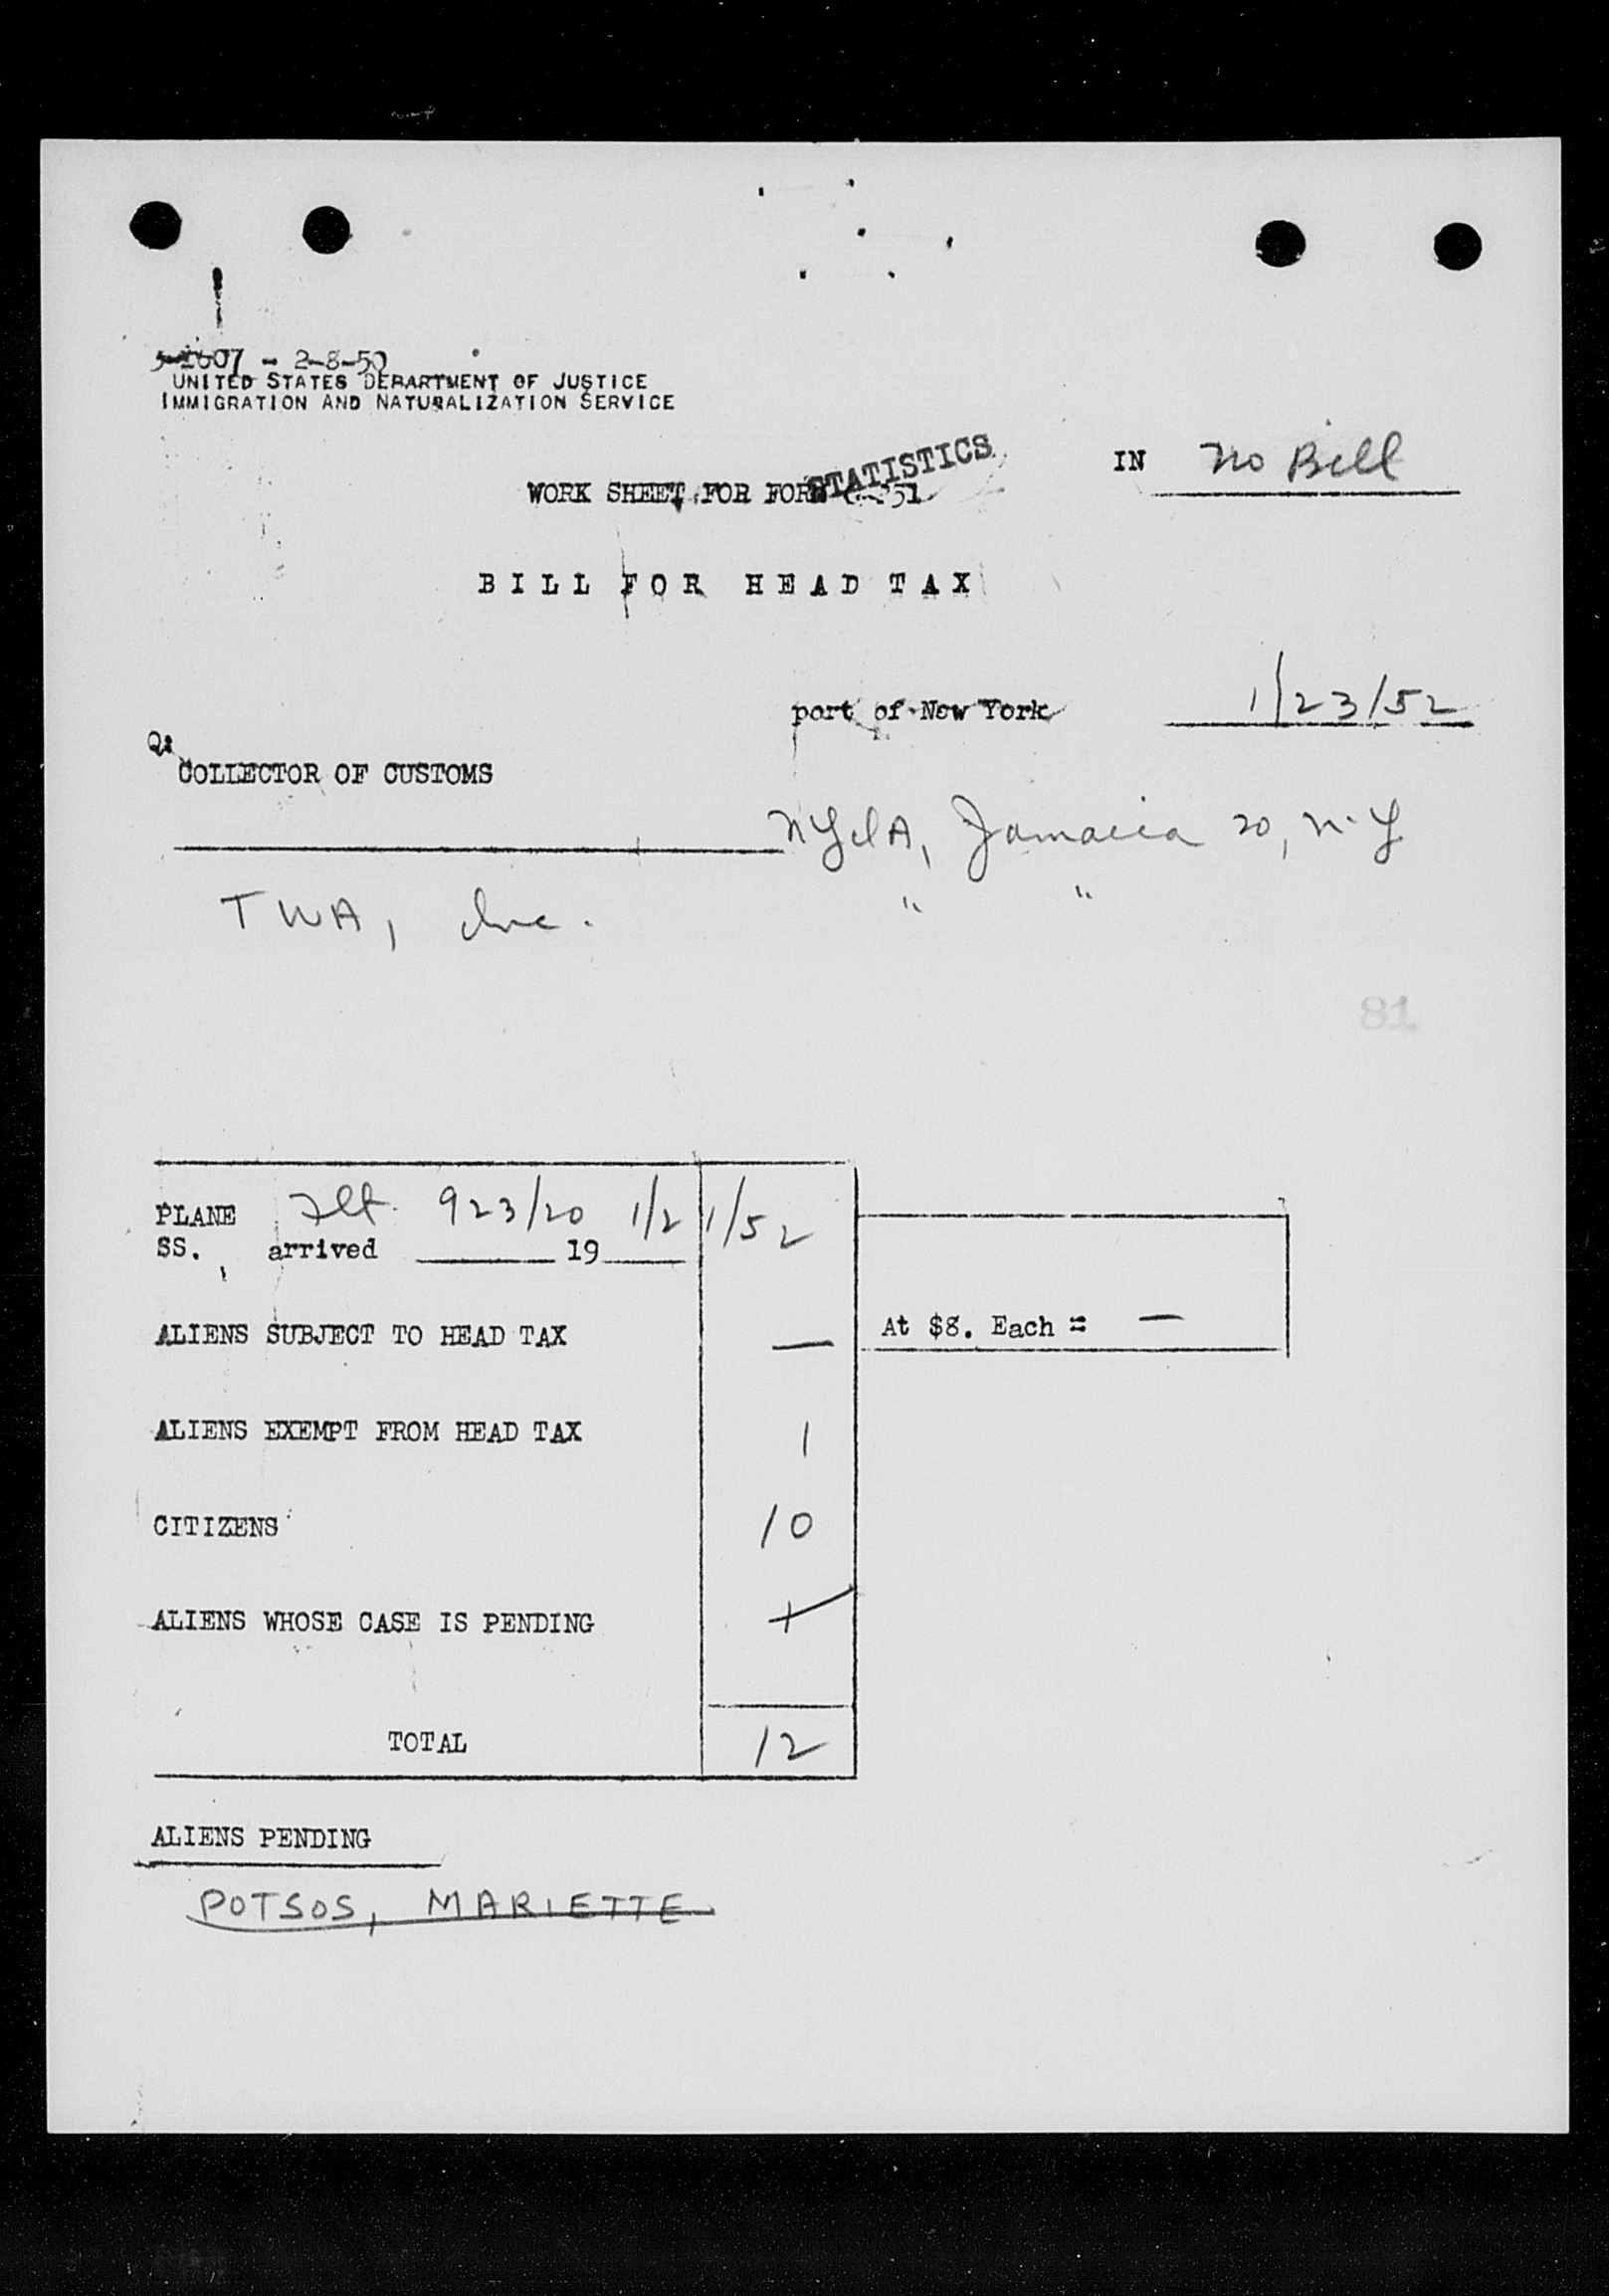 2-8-50
UNITED STATES DEPARTMENT OF JUSTICE
IMMIGRATION AND NATURALIZATION SERVICE
STATISTICS
IN No Bill
WORK SHEET FOR FORM
BILL FOR HEAD TAX
port of New York 1/23/52
COLLECTOR OF CUSTOMS
NYIA, Jamaica 20, N.Y
TWA, Inc. " "
81
PLANE Flt. 923/20 1/21/52
SS. arrived 19
ALIENS SUBJECT TO HEAD TAX —
At $8. Each = —
ALIENS EXEMPT FROM HEAD TAX 1
CITIZENS 10
ALIENS WHOSE CASE IS PENDING 1
TOTAL 12
ALIENS PENDING
POTSOS, MARIETTE